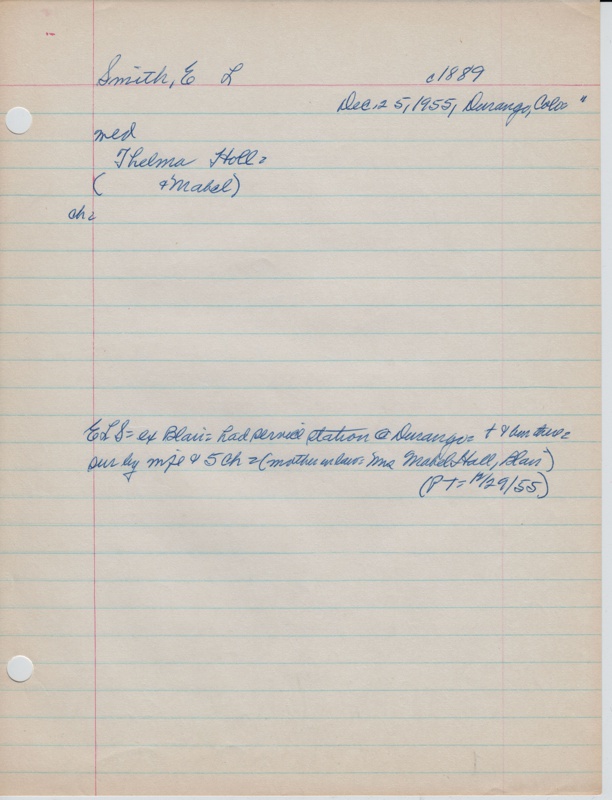 Smith, E L c1889
Dec. 25, 1955, Durango, Colo "
med
Thelma Holl=
( & Mabel)
ch=
ELS= ex Blair= had service station @ Durango= + & bur there=
sur by wife & 5 ch = (mother in law= Mrs Mabel Hall, Blair)
(PT= 12/29/55)